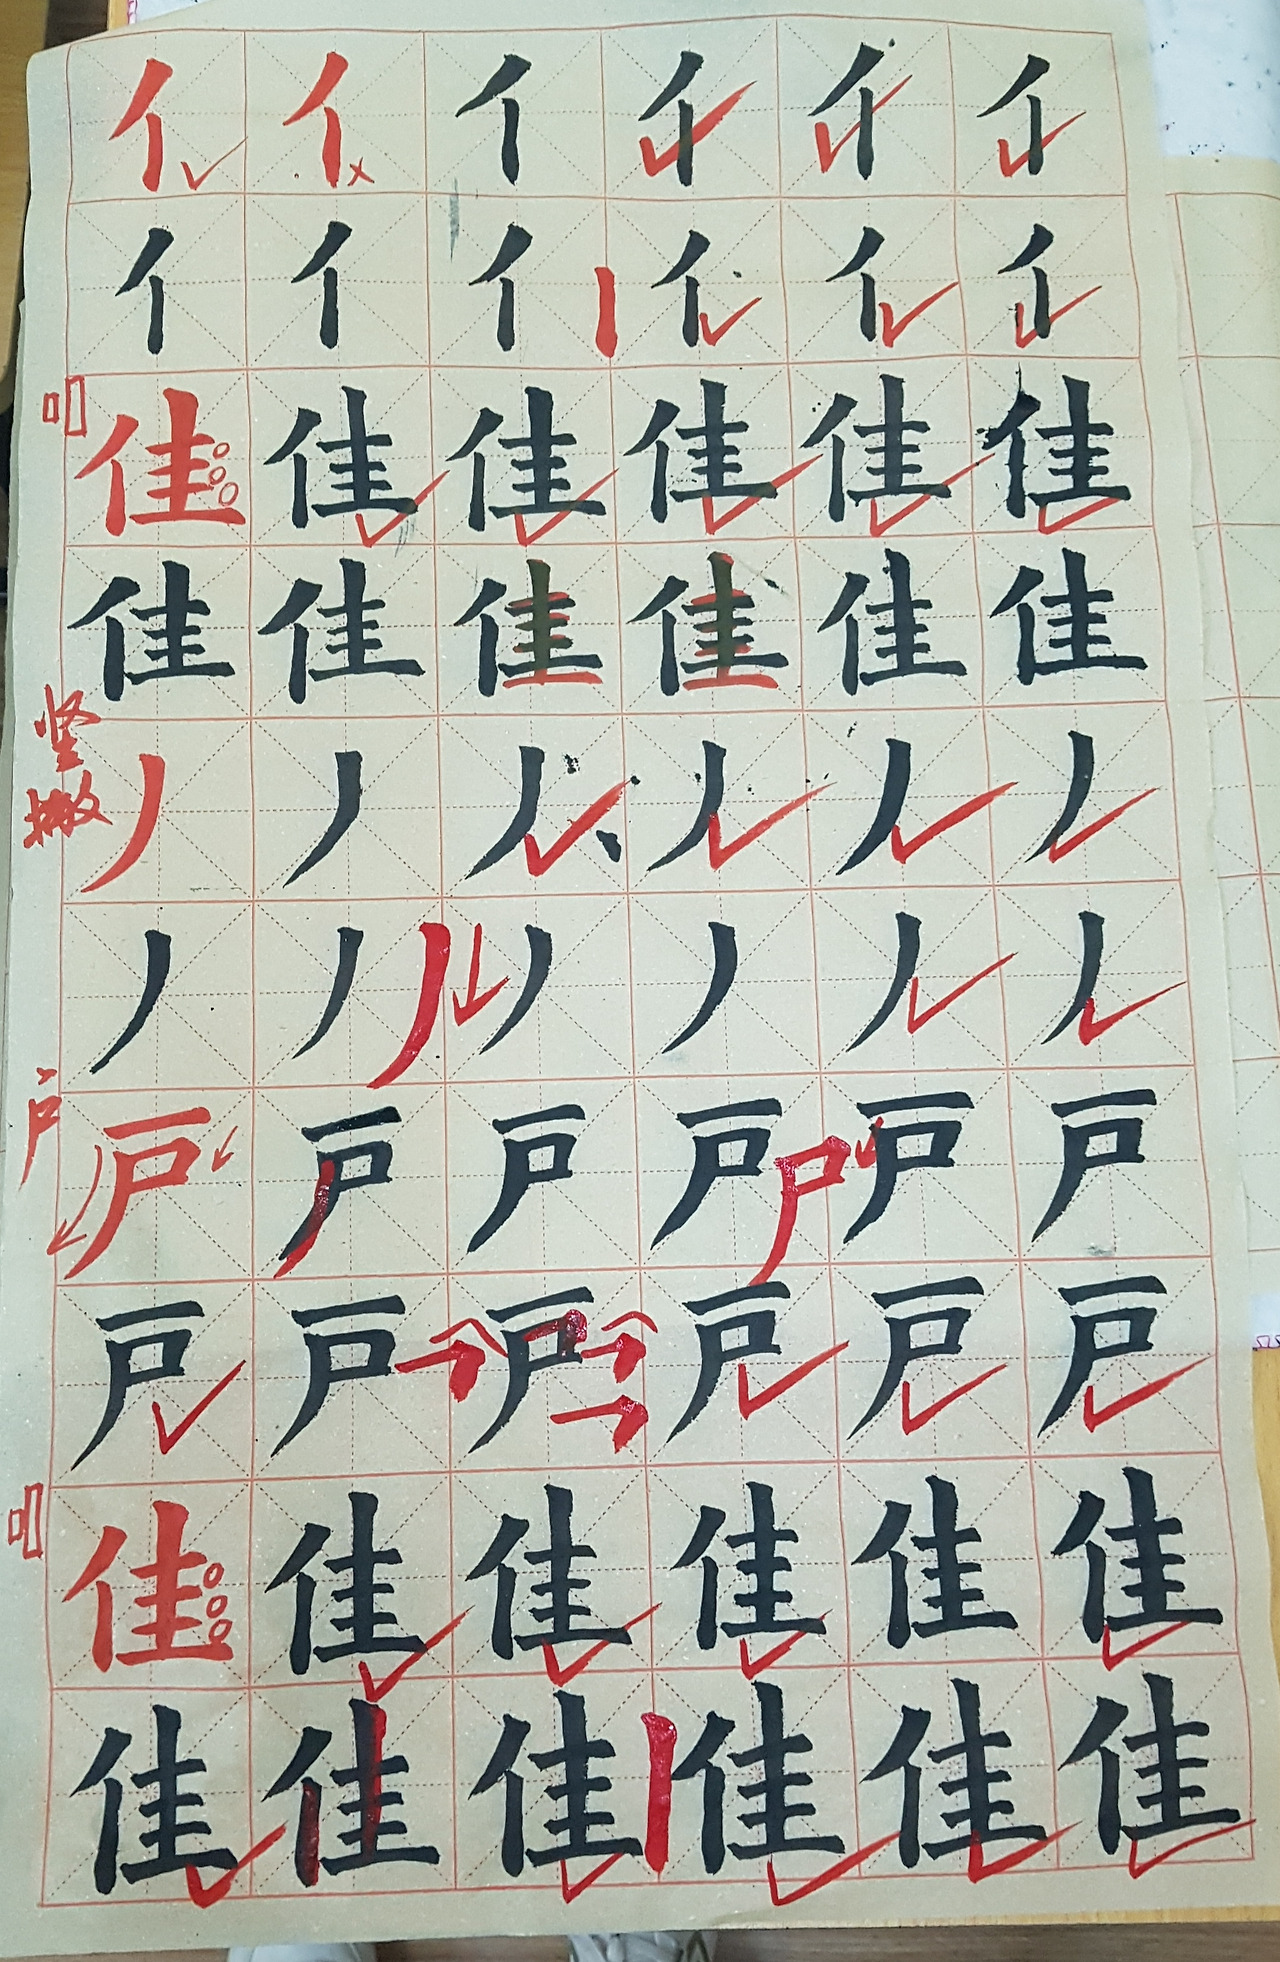 亻亻亻亻亻亻
亻亻亻亻亻亻
佳佳佳佳佳佳
佳佳佳佳佳佳
竖撇
丿丿丿丿丿丿
丿丿丿丿丿丿
户
戸戸戸戸戸戸
戸戸戸戸戸戸
佳佳佳佳佳佳
佳佳佳佳佳佳